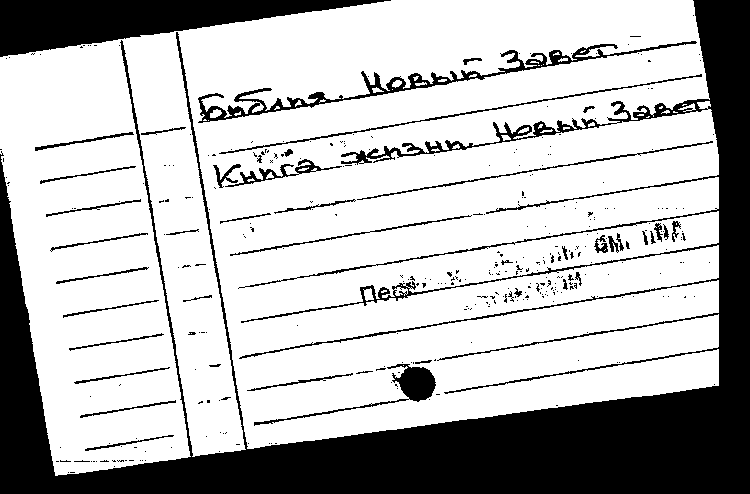 Библия. Новый Завет
Книга жизни. Новый Завет.
см. под